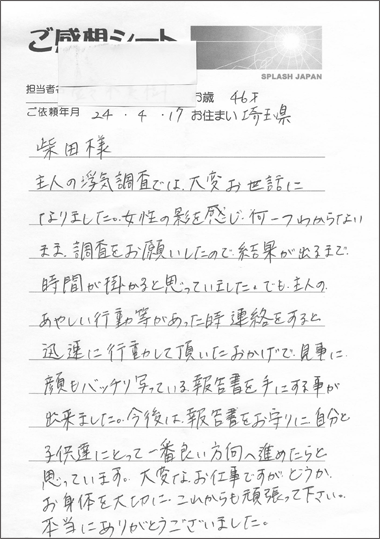 ご感想シート
SPLASH JAPAN
担当者名
お歳 46才
ご依頼年月 24・4・17 お住まい 埼玉県
柴田様
主人の浮気調査では、大変お世話に
なりました。女性の影を感じ、何一つわからない
まま、調査をお願いしたので、結果が出るまで、
時間が掛かると思っていました。でも、主人の、
あやしい行動等があった時連絡をすると
迅速に行動して頂いたおかげで、見事に、
顔もバッチリ写っている、報告書を手にする事が
出来ました。今後は、報告書をお守りに、自分と
子供達にとって一番良い方向へ進めたらと
思っています。大変な、お仕事ですが、どうか、
お身体を大切に、これからも頑張って下さい。
本当にありがとうございました。